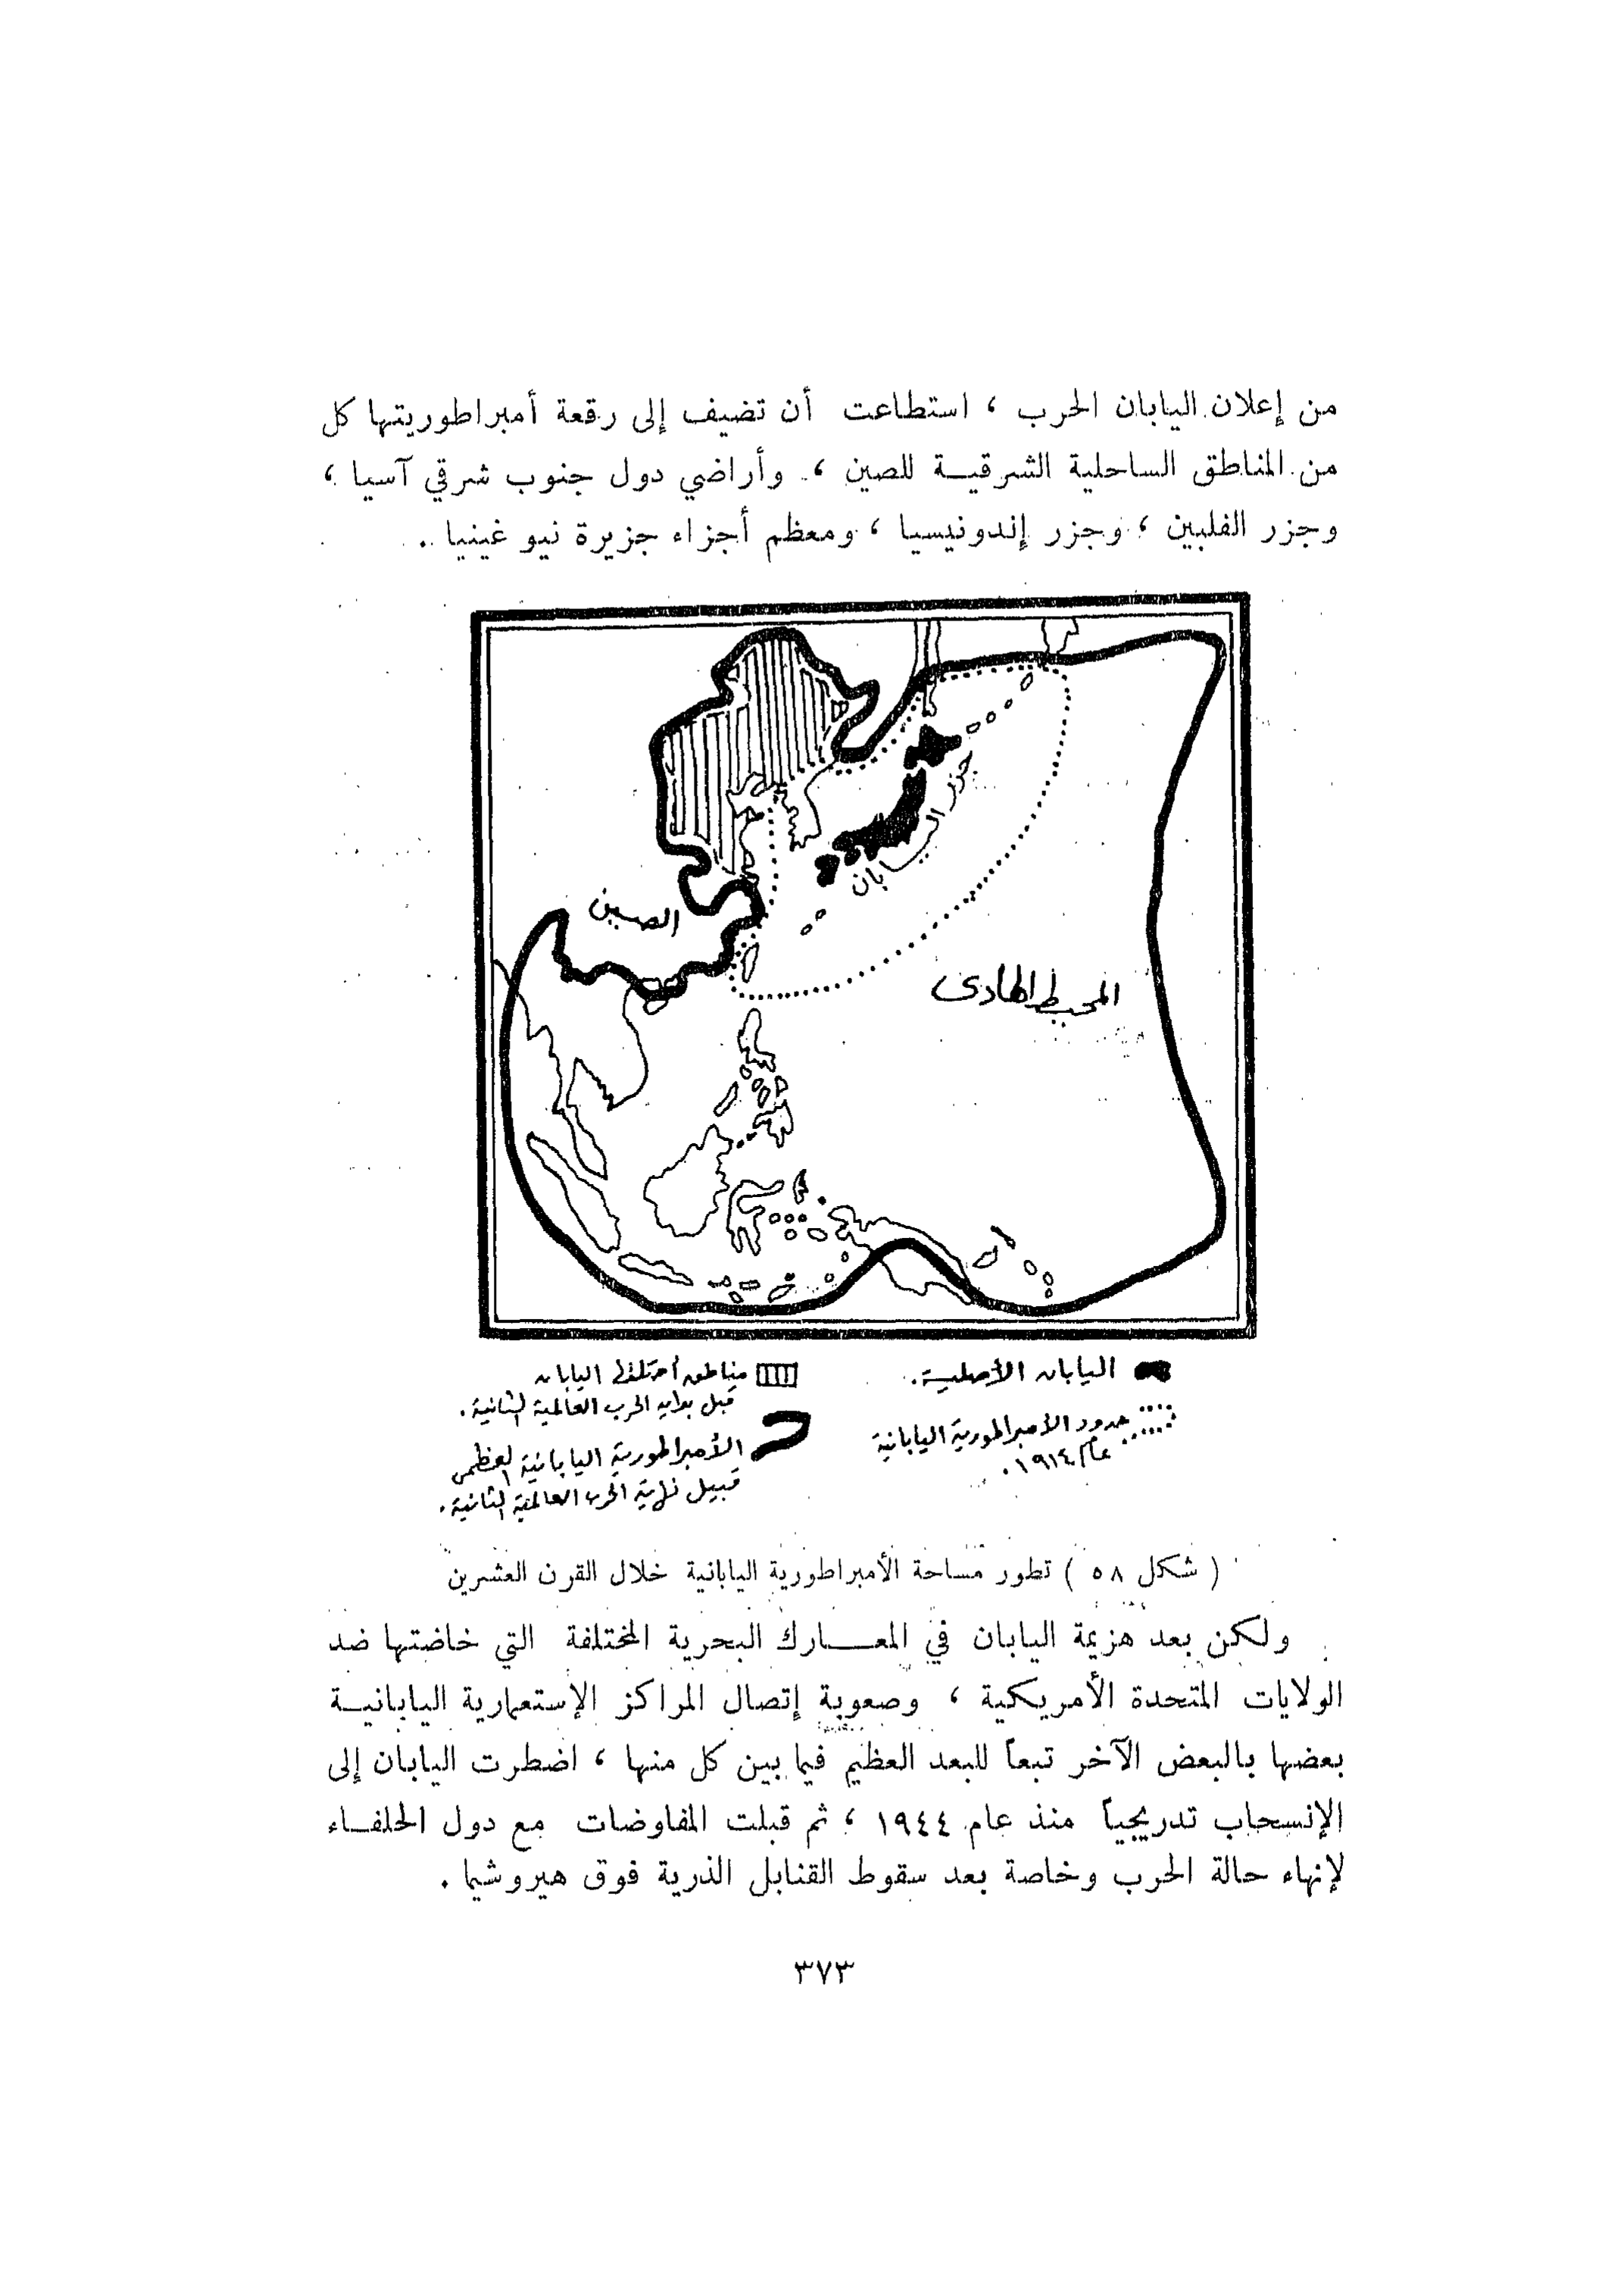 من إعلان اليابان الحرب ، استطاعت أن تضيف إلى رقعة أمبراطوريتها كل
من المناطق الساحلية الشرقيـة للصين ، وأراضي دول جنوب شرقي آسيا ،
وجزر الفلبين ، وجزر إندونيسيا ، ومعظم أجزاء جزيرة نيو غينيا .
جزر اليابان
الصين
المحيط الهادى
اليابان الأصلية .
حدود الأمبراطورية اليابانية
عام ١٩١٤ .
مناطق أحتلتها اليابان
قبل بداية الحرب العالمية الثانية .
الأمبراطورية اليابانية العظمى
قبيل نهاية الحرب العالمية الثانية .
( شكل ٥٨ ) تطور مساحة الأمبراطورية اليابانية خلال القرن العشرين
ولكن بعد هزيمة اليابان في المعـــارك البحرية المختلفة التي خاضتها ضد
الولايات المتحدة الأمريكية ، وصعوبة إتصال المراكز الإستعمارية اليابانيـة
بعضها بالبعض الآخر تبعاً للبعد العظيم فيما بين كل منها ، اضطرت اليابان إلى
الإنسحاب تدريجياً منذ عام ١٩٤٤ ، ثم قبلت المفاوضات مع دول الحلفـاء
لإنهاء حالة الحرب وخاصة بعد سقوط القنابل الذرية فوق هيروشيما .
٣٧٣